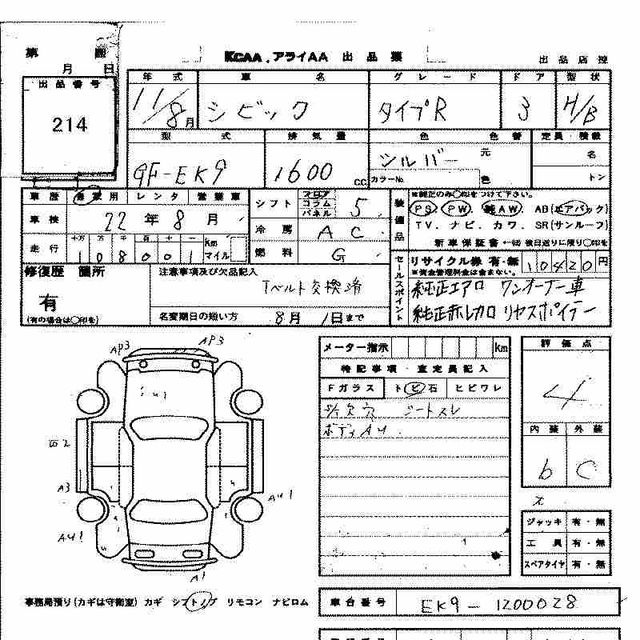 第 回
月 日
KCAA.アライAA 出品票
出品店控
出品番号
214
年式 車名 グレード ドア 型状
11/8月 シビック タイプR 3 H/B
型式 排気量 色 色替 定員・積載
GF-EK9 1600cc シルバー 元 名
カラーNo. 色 トン
車歴 自家用 レンタ 営業車
車検 22年8月
走行 十万 万 千 百 十 一 Km マイル
108001
シフト フロア コラム パネル 5
冷房 AC
燃料 G
装備品
※純正のみ○印をつけて下さい。
PS. PW. 純AW. AB(エアバック)
TV. ナビ. カワ. SR(サンルーフ)
新車保証書・一切 後日送りに限り○印を
リサイクル券 有・無 10420円
※資金管理料金は含まない。
修復歴 箇所
有
(有の場合は○印を)
注意事項及び欠品記入
Tベルト交換済
名変期日の短い方 8月1日まで
セールスポイント
純正エアロ ワンオーナー車
純正赤レカロ リヤスポイラー
メーター指示 km
特記事項・査定員記入
Fガラス ト ビ 石 ヒビワレ
シートスレ
ボディAU
評価点
4
内装 外装
b C
ジャッキ 有・無
工具 有・無
スペアタイヤ 有・無
AP3 AP3
A3
AU1
AU1
A1
事務局預り(カギは守衛室) カギ シフトノブ リモコン ナビロム
車台番号 EK9-1200028